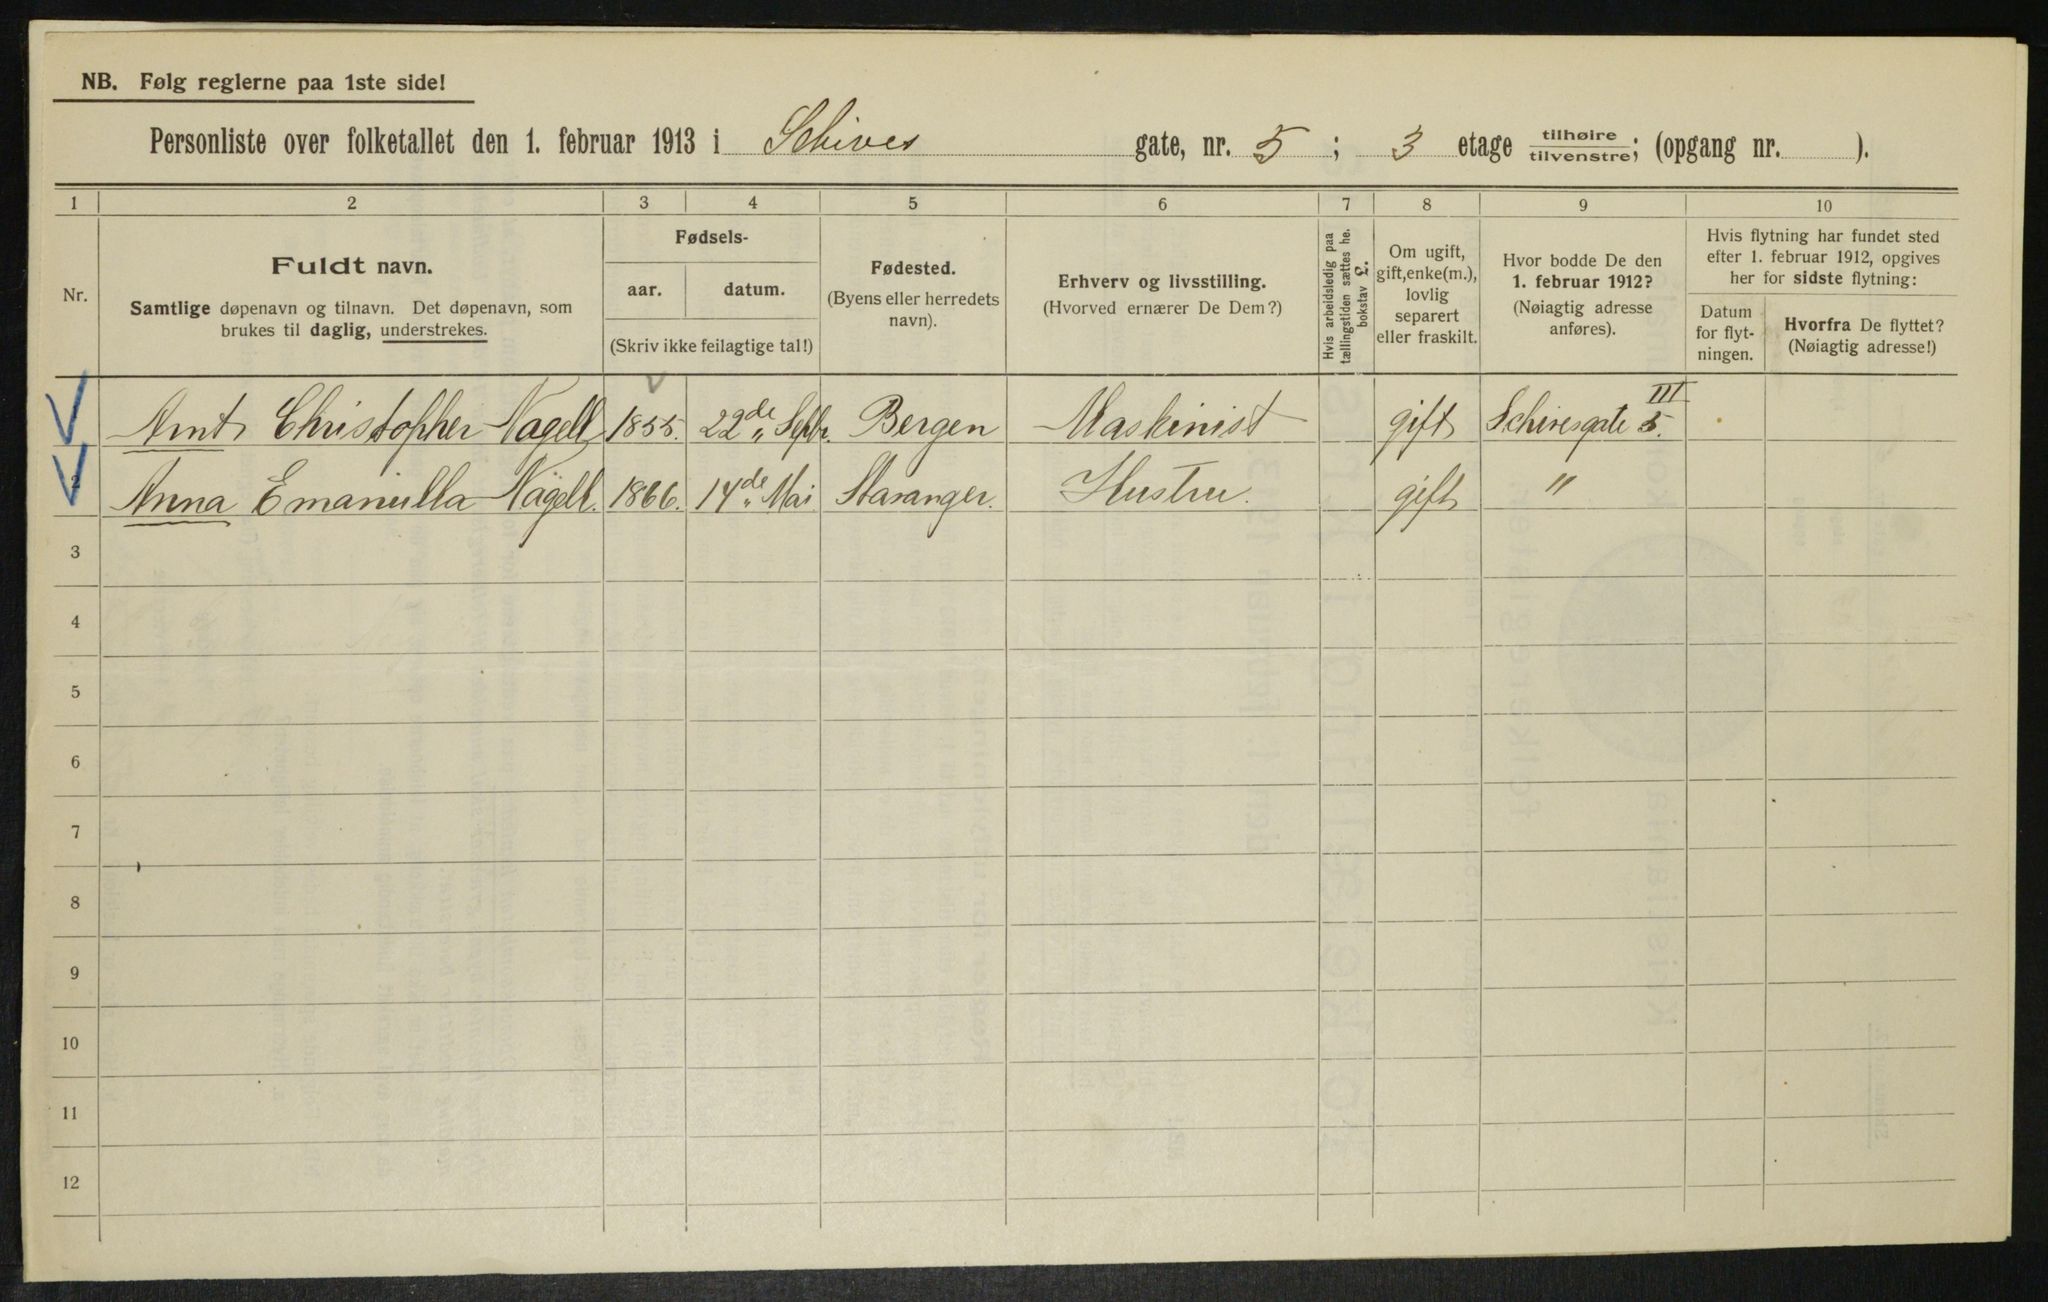 NB. Følg reglerne paa 1ste side!
Personliste over folketallet den 1. februar 1913 i Schives gate, nr. 5; 3 etage tilhøire tilvenstre; (opgang nr. ).
1 2 3 4 5 6 7 8 9 10
Nr.
Fuldt navn.
Samtlige døpenavn og tilnavn. Det døpenavn, som
brukes til daglig, understrekes.
Fødsels-
aar. datum.
(Skriv ikke feilagtige tal!)
Fødested.
(Byens eller herredets
navn).
Erhverv og livsstilling.
(Hvorved ernærer De Dem?)
Hvis arbeidsledig paa
tællingstiden sættes he.
bokstav L.
Om ugift,
gift, enke(m.),
lovlig
separert
eller fraskilt.
Hvor bodde De den
1. februar 1912?
(Nøiagtig adresse
anføres).
Hvis flytning har fundet sted
efter 1. februar 1912, opgives
her for sidste flytning:
Datum
for flyt-
ningen.
Hvorfra De flyttet?
(Nøiagtig adresse!)
Arnt Christopher Nagell 1855. 22de Septbr. Bergen Maskinist gift Schivesgate 5. III
2 Anna Emanuella Nagell. 1866. 14de Mai Stavanger. Hustru. gift "
3
4
5
6
7
8
9
10
11
12